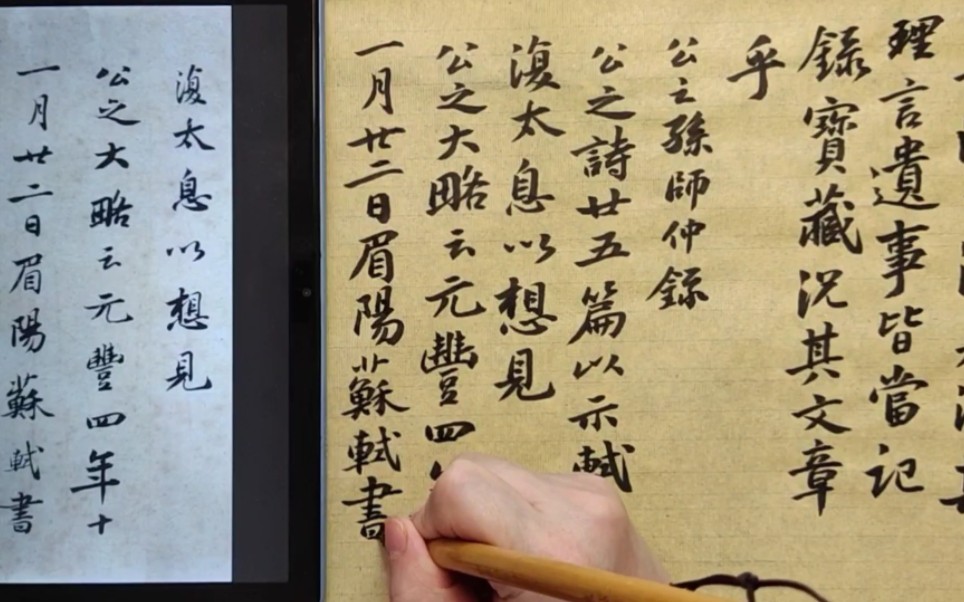 理言遺事皆當記
錄寶藏況其文章
乎
公之孫師仲錄
公之詩廿五篇以示軾
復太息以想見
公之大略云元豐四
一月廿二日眉陽蘇軾書
復太息以想見
公之大略云元豐四年十
一月廿二日眉陽蘇軾書